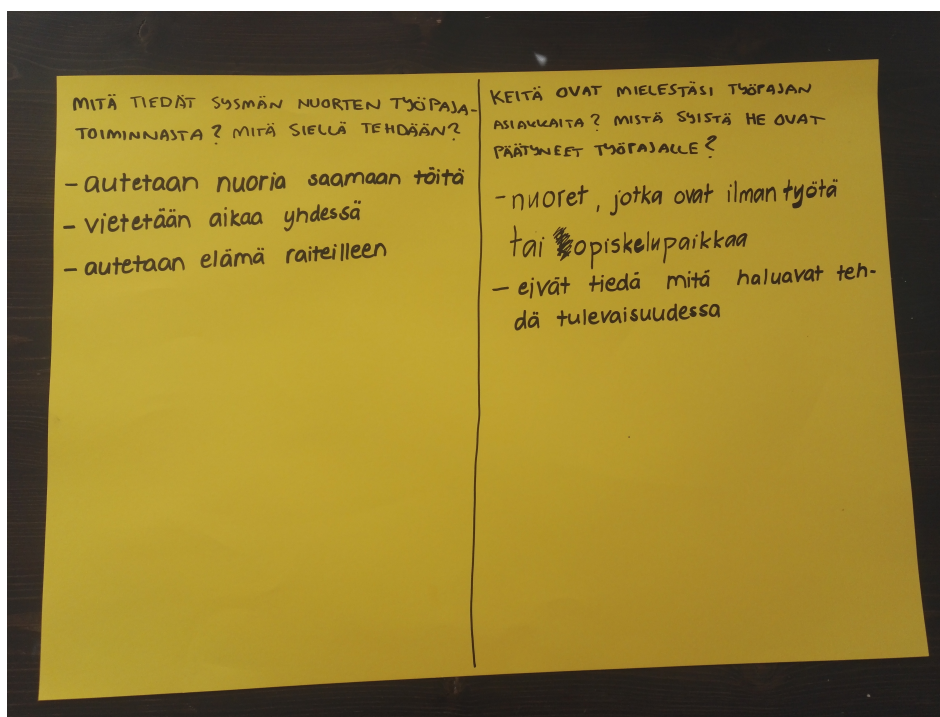 MITÄ TIEDÄT SYSMÄN NUORTEN TYÖPAJA-
TOIMINNASTA? MITÄ SIELLÄ TEHDÄÄN?
- autetaan nuoria saamaan töitä
- vietetään aikaa yhdessä
- autetaan elämä raiteilleen
KEITÄ OVAT MIELESTÄSI TYÖPAJAN
ASIAKKAITA? MISTÄ SYISTÄ HE OVAT
PÄÄTYNEET TYÖPAJALLE?
- nuoret, jotka ovat ilman työtä
tai opiskelupaikkaa
- eivät tiedä mitä haluavat teh-
dä tulevaisuudessa